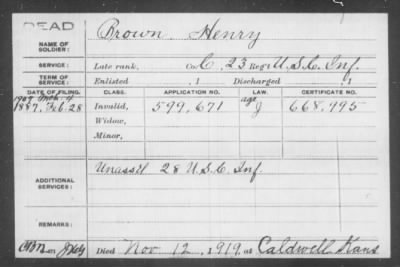 DEAD
NAME OF SOLDIER: Brown Henry
SERVICE: Late rank, Co. C, 23 Reg't U.S.C. Inf.
TERM OF SERVICE: Enlisted , 1 Discharged , 1
DATE OF FILING. CLASS. APPLICATION NO. LAW. CERTIFICATE NO.
1887, Feb. 28 Invalid, 599,671 668,995
Widow,
Minor,
ADDITIONAL SERVICES: Unass'd 28 U.S.C. Inf.
REMARKS:
Died Nov 12, 1919, at Caldwell Kans